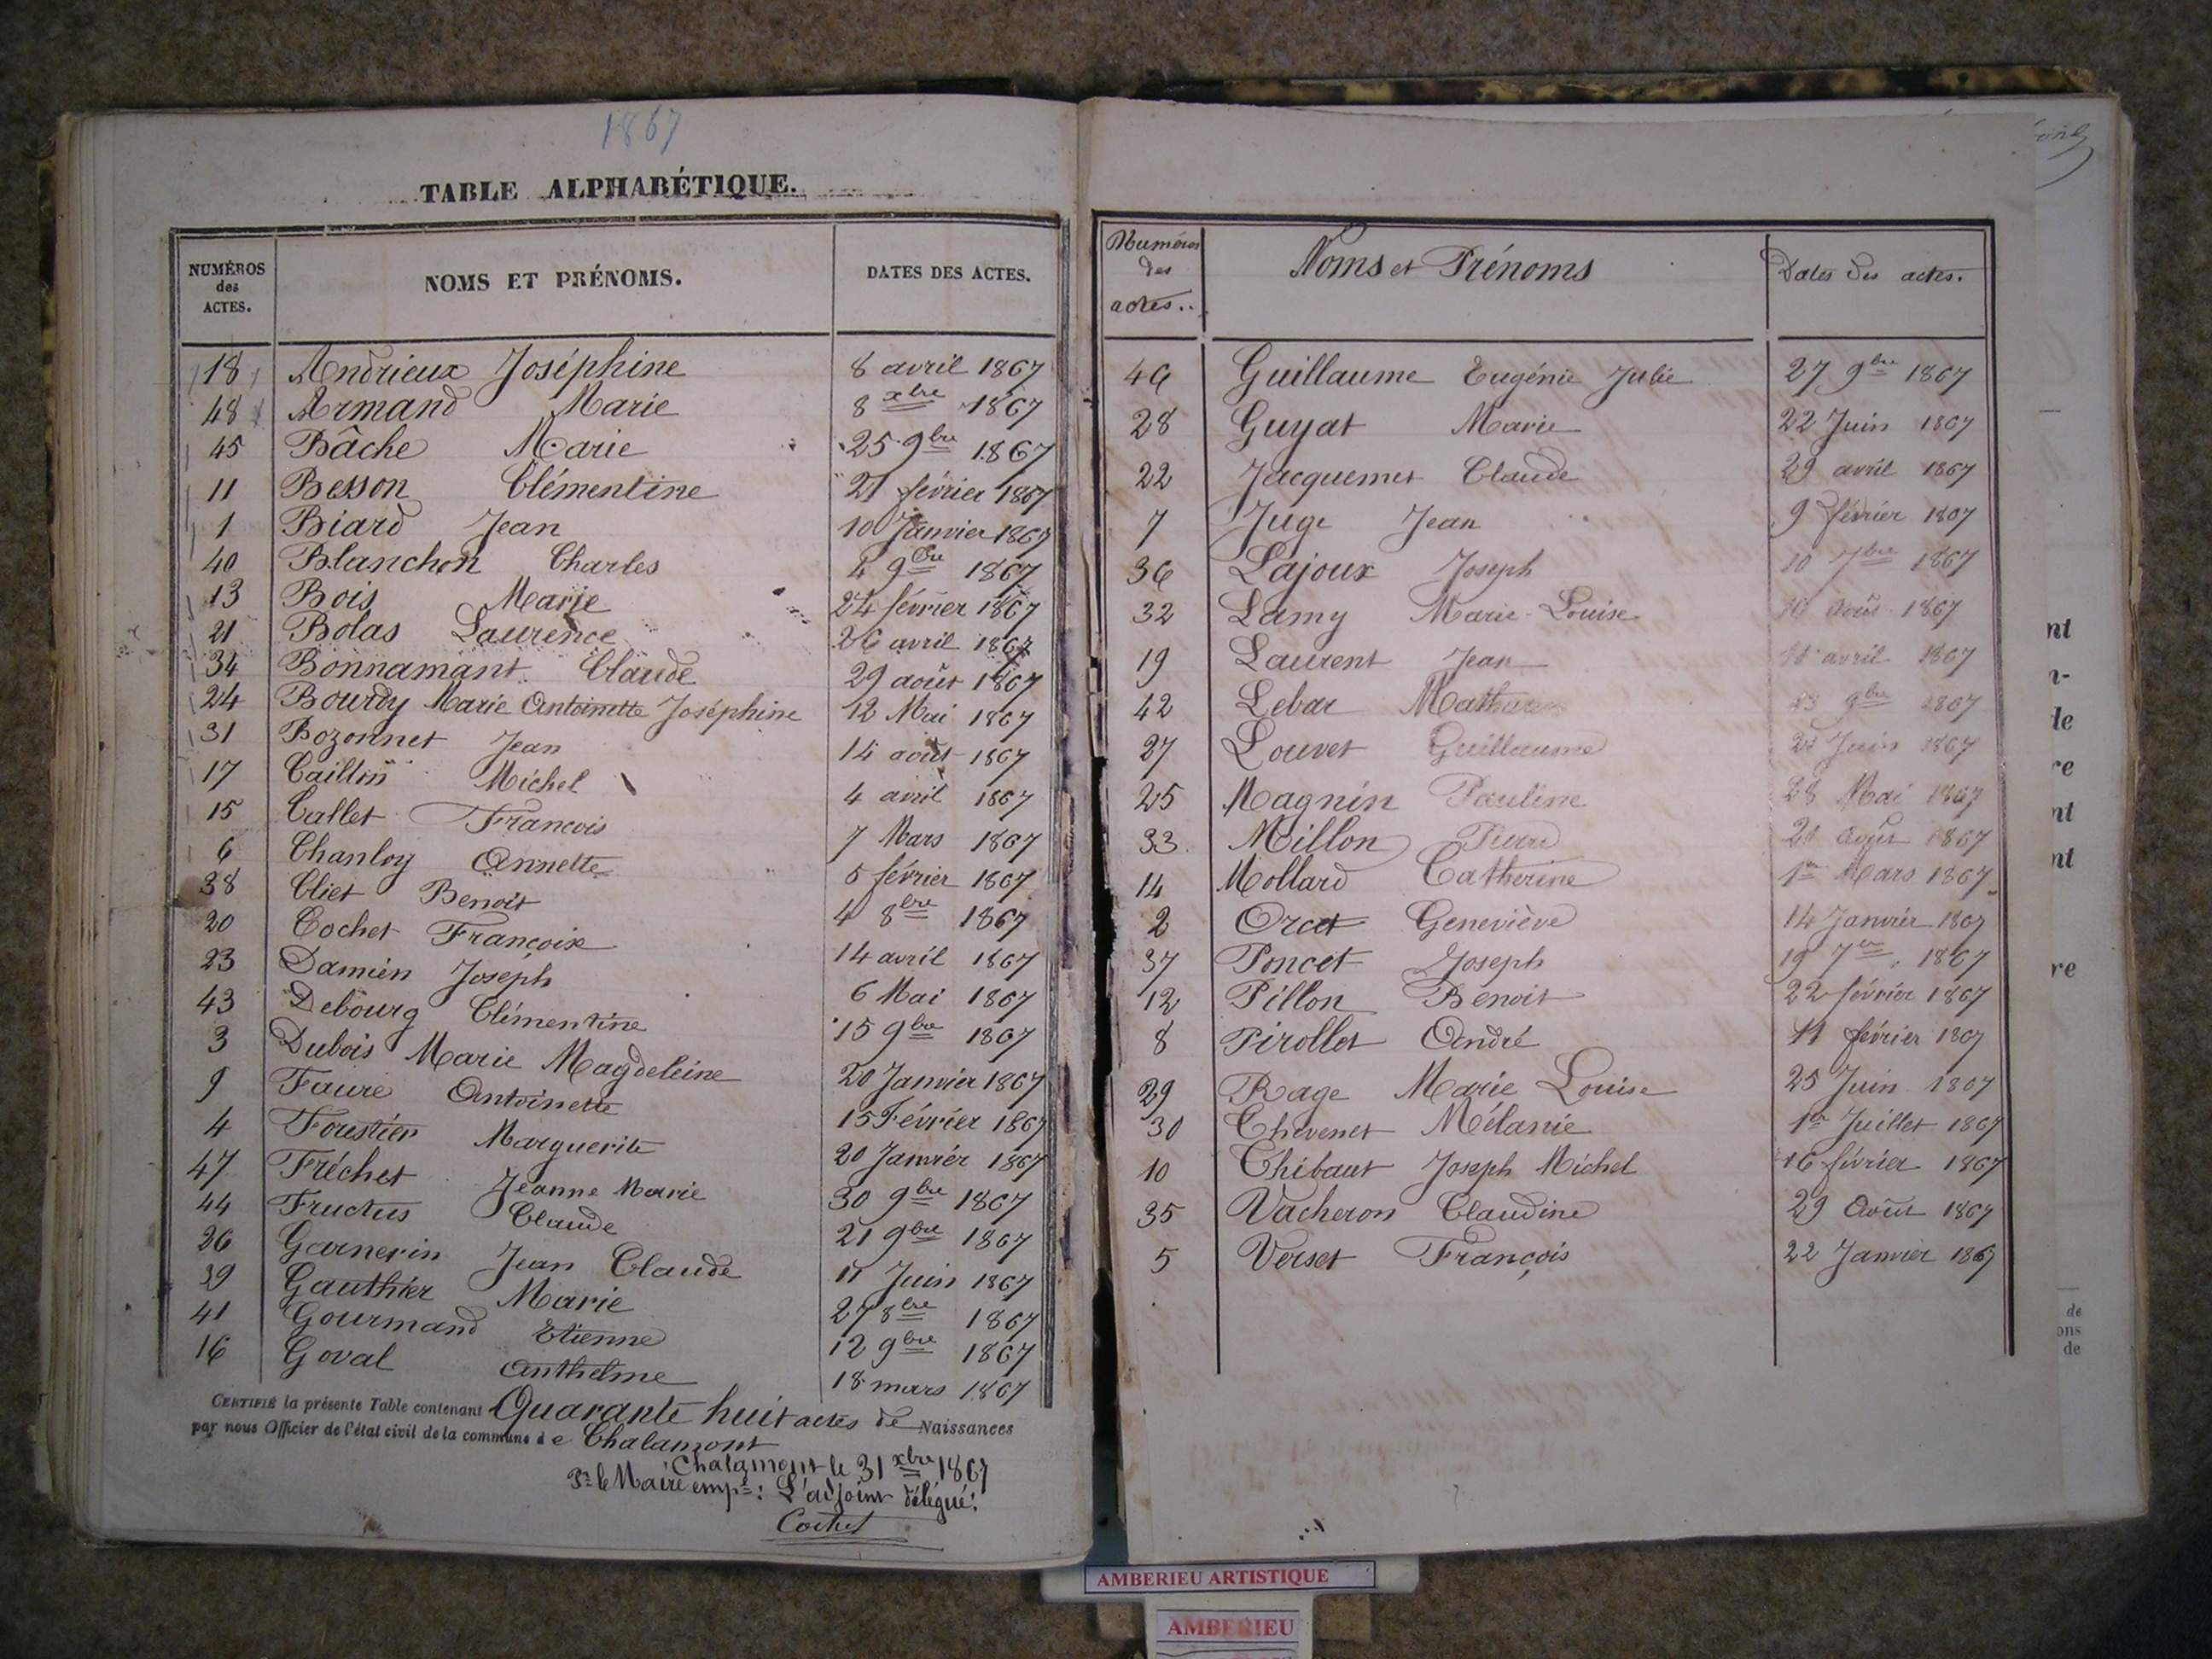 1867
TABLE ALPHABÉTIQUE.
NUMÉROS des ACTES. NOMS ET PRÉNOMS. DATES DES ACTES.
18 Andrieux Joséphine 8 avril 1867
48 Armand Marie 8 xbre 1867
45 Bâche Marie 25 9bre 1867
11 Besson Clémentine 21 février 1867
1 Biard Jean 10 Janvier 1867
40 Blanchon Charles 4 9bre 1867
13 Bois Marie 24 février 1867
21 Bolas Laurence 26 avril 1867
34 Bonnamant Claude 29 août 1867
24 Bourdy Marie Antoinette Joséphine 12 Mai 1867
31 Bozonnet Jean 14 août 1867
17 Caillon Michel 4 avril 1867
15 Callet François 7 Mars 1867
6 Chanloy Annette 5 février 1867
38 Cliet Benoit 4 8bre 1867
20 Cochet Françoise 14 avril 1867
23 Damien Joseph 6 Mai 1867
43 Debourg Clémentine 15 9bre 1867
3 Dubois Marie Magdeleine 20 Janvier 1867
9 Faure Antoinette 15 Février 1867
4 Forestier Marguerite 20 Janvier 1867
47 Fréchet Jeanne Marie 30 9bre 1867
44 Fructus Claude 21 9bre 1867
26 Garnerin Jean Claude 11 Juin 1867
39 Gauthier Marie 27 8bre 1867
41 Gourmand Etienne 12 9bre 1867
16 Goval Anthelme 18 mars 1867
CERTIFIÉ la présente Table contenant Quarante huit actes de Naissances
par nous Officier de l'état civil de la commune de Chalamont
Chalamont le 31 xbre 1867
Pr le Maire emp: L'adjoint délégué:
Cochet
Numéros des actes.. Noms et Prénoms Dates des actes.
46 Guillaume Eugénie Julie 27 9bre 1867
28 Guyat Marie 22 Juin 1867
22 Jacquemet Claude 29 avril 1867
7 Juge Jean 9 février 1867
36 Lajoux Joseph 10 7bre 1867
32 Lamy Marie-Louise août 1867
19 Laurent Jean avril 1867
42 Lebar 13 9bre 1867
27 Louvet Guillaume 21 Juin 1867
25 Magnin Pauline 28 Mai 1867
33 Millon Pierre 21 août 1867
14 Mollard Catherine 1er Mars 1867
2 Orcet Geneviève 14 Janvier 1867
37 Poncet Joseph 19 7bre 1867
12 Pillon Benoit 22 février 1867
8 Pirollet André 11 février 1867
29 Rage Marie Louise 25 Juin 1867
30 Thevenet Mélanie 1er Juillet 1867
10 Thibaut Joseph Michel 16 février 1867
35 Vacheron Claudine 29 Août 1867
5 Verset François 22 Janvier 1867
nt
n-
de
re
nt
nt
re
de
ons
de
AMBERIEU ARTISTIQUE
AMBERIEU